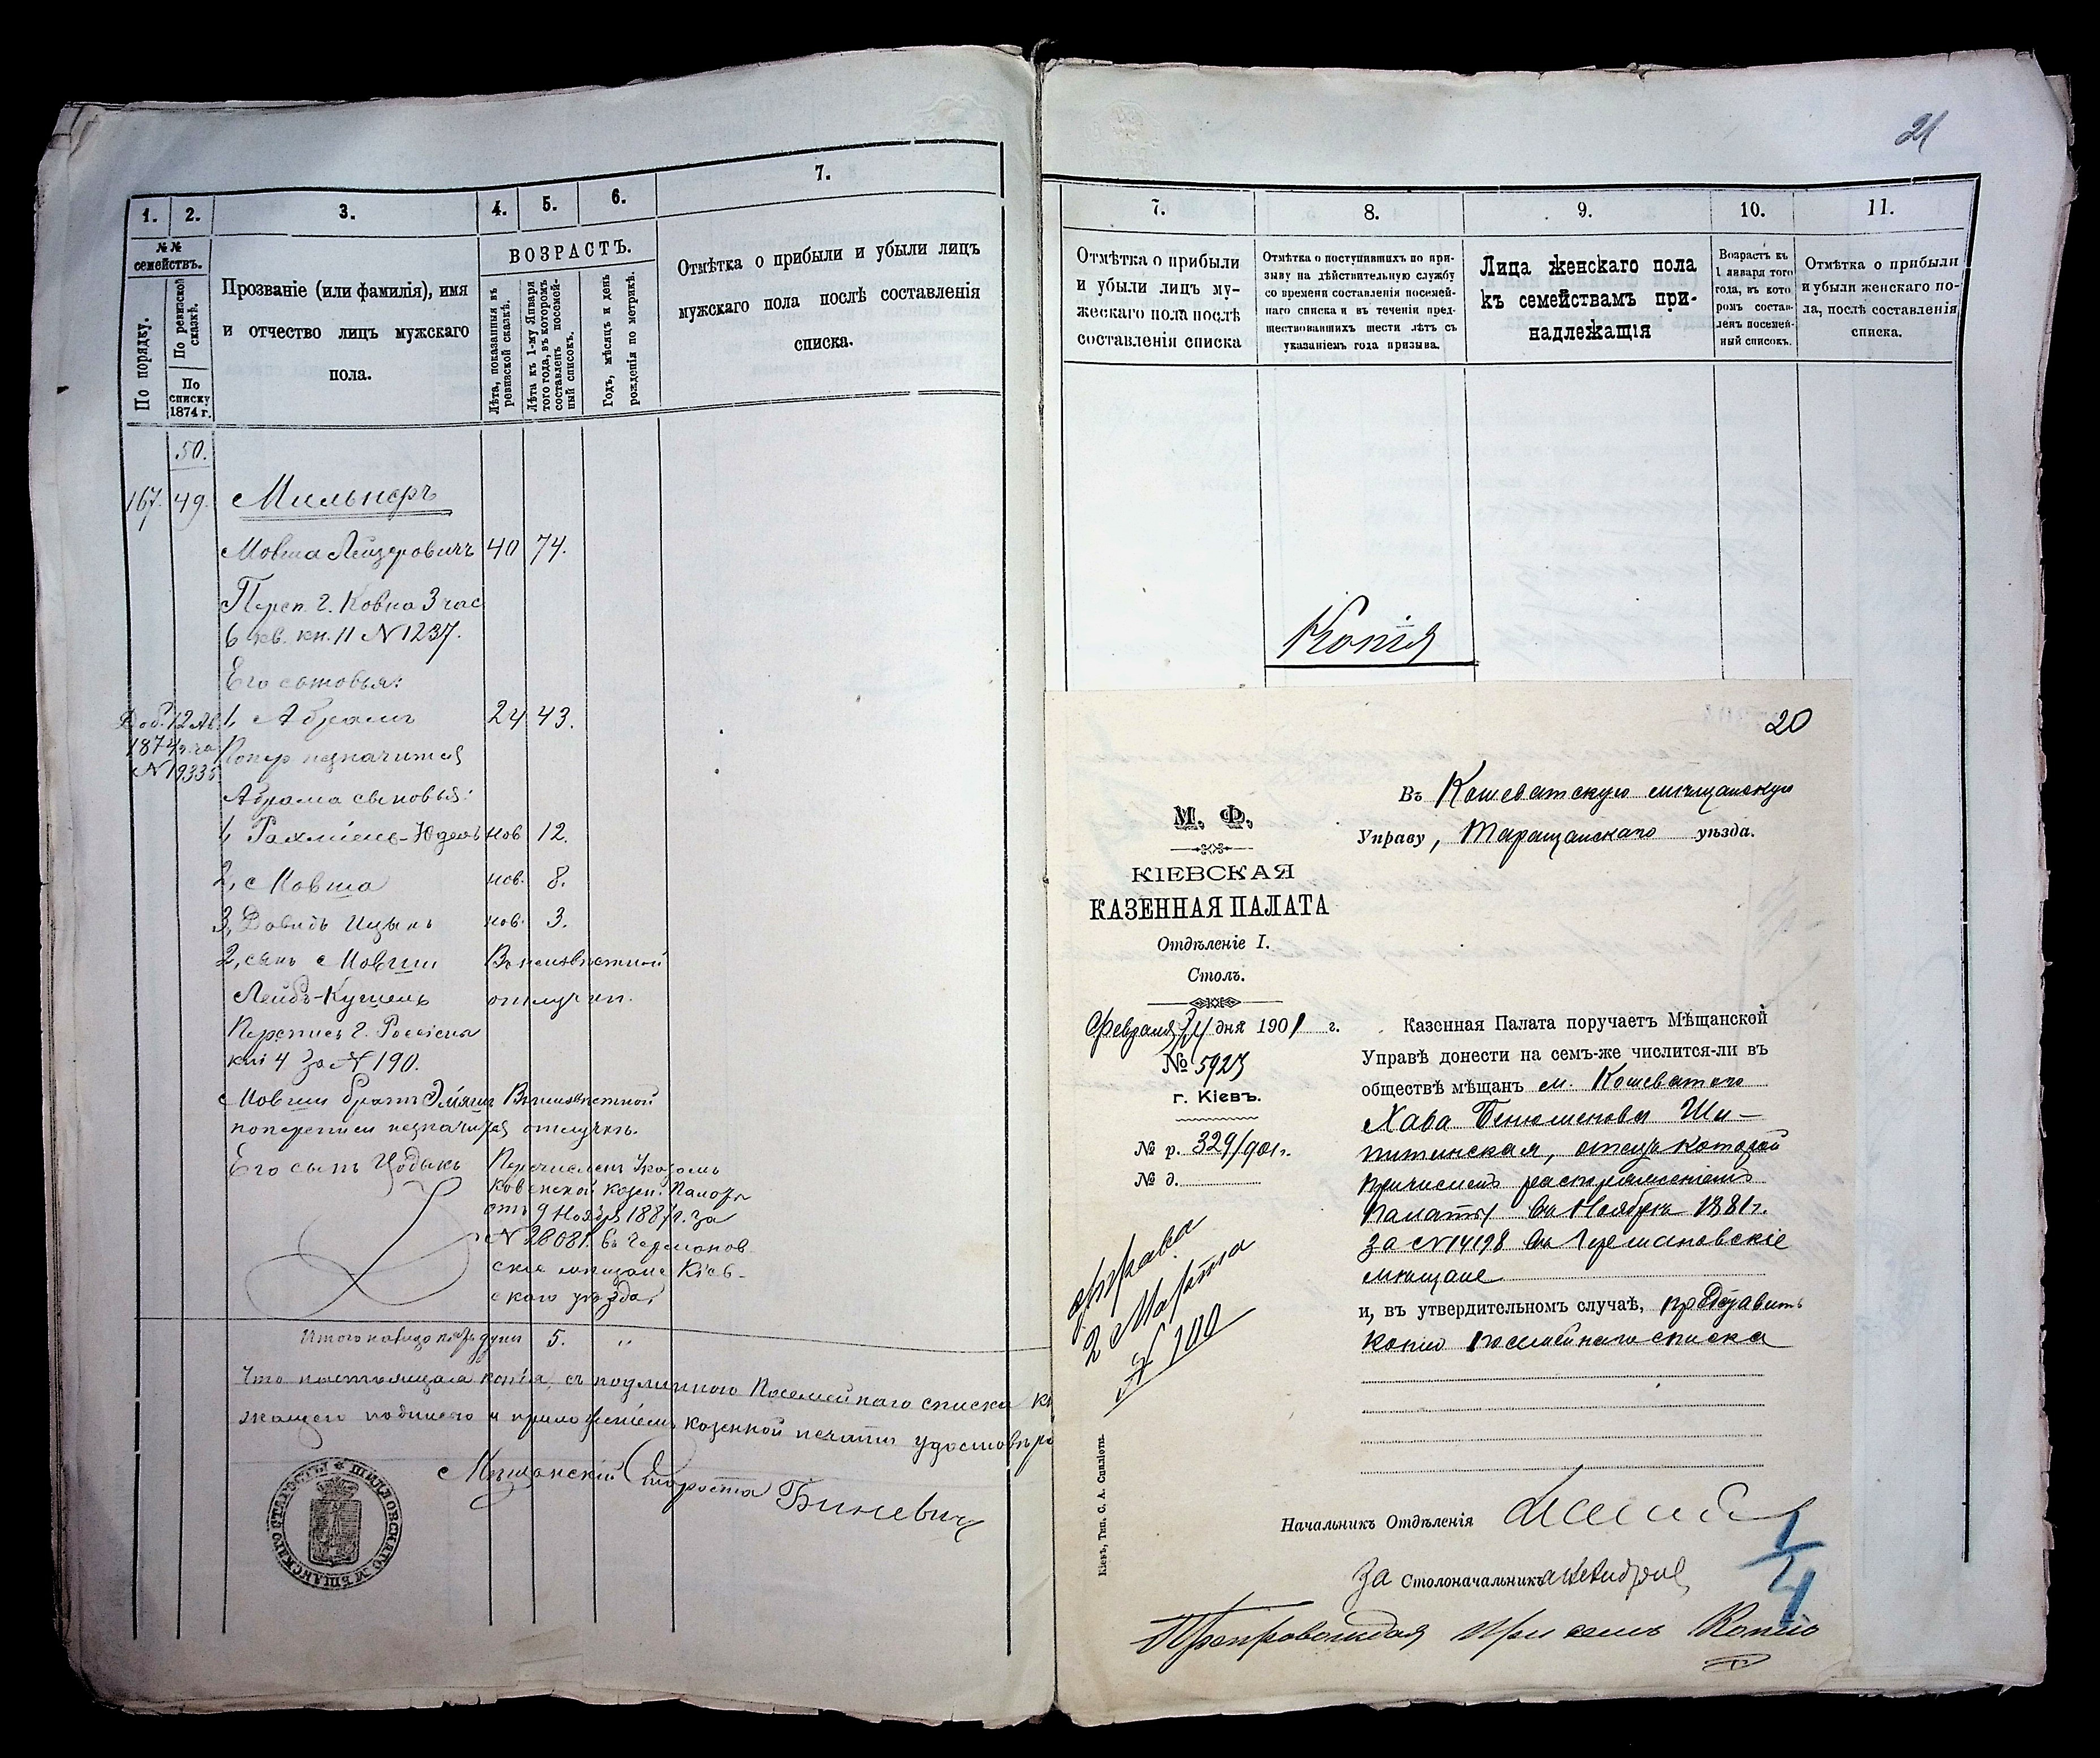 1.
2.
3.
4.
5.
6.
7.
№№ семействъ.
По порядку.
По ревизской сказкѣ.
По списку 1874 г.
Прозваніе (или фамилія), имя
и отчество лицъ мужскаго
пола.
ВОЗРАСТЪ.
Лѣта, показанныя въ ревизской сказкѣ.
Лѣта къ 1-му Января того года, въ которомъ составленъ посемейный списокъ.
Годъ, мѣсяцъ и день рожденія по метрикѣ.
Отмѣтка о прибыли и убыли лицъ
мужскаго пола послѣ составленія
списка.
50.
167. 49. Мильнеръ
Мовша Лейзеровичъ 40 74.
Переп. г. Ковна 3 час
6 кв. кн. 11 N 1237.
Его сыновья:
1, Абрамъ 24 43.
Доб. 12 Ав.
1874 г. за
N 19335
Попер незначится
Абрама сыновья:
1, Рахміель-Юдель нов 12.
2, Мовша нов. 8.
3, Давидъ Ицыкъ нов. 3.
2, сынъ Мовши Въ неизвѣстной
Лейбъ-Кушель отлучкѣ.
Перепись г. Россіены
кн 4 за N 190.
Мовши братъ Въ неизвѣстной
попереписи незначится отлучкѣ.
Его сынъ Цодыкъ Перечисленъ Указомъ
Ковенской Казен. Палаты
отъ 9 Ноября 1887 г. за
N 28081. въ Германов
скіе мѣщане Кіев-
скаго уѣзда.
Итого налицо муж. души 5. „
Что настоящая копія, съ подлиннаго Посемейнаго списка
жащею подписью и приложеніемъ казенной печати удостовѣря
Мѣщанскій Староста Биневич
ШИЛЛОВСКАГО МѢЩАНСКАГО СТАРОСТЫ
21
7.
8.
9.
10.
11.
Отмѣтка о прибыли
и убыли лицъ му-
жескаго пола послѣ
составленія списка
Отмѣтка о поступившихъ по при-
зыву на дѣйствительную службу
со времени составленія посемей-
наго списка и въ теченіи пред-
шествовавшихъ шести лѣтъ съ
указаніемъ года призыва.
Лица женскаго пола
къ семействамъ при-
надлежащія
Возрастъ къ
1 января того
года, въ кото
ромъ состав-
ленъ посемей-
ный списокъ.
Отмѣтка о прибыли
и убыли женскаго по-
ла, послѣ составленія
списка.
Копія
20
Въ Кошеватскую мѣщанскую
Управу, Таращанскаго уѣзда.
М. Ф.
КІЕВСКАЯ
КАЗЕННАЯ ПАЛАТА
Отдѣленіе I.
Столъ.
Февраля 24 дня 1901 г.
№ 5923
г. Кіевъ.
№ р. 329/901 г.
№ д.
Казенная Палата поручаетъ Мѣщанской
Управѣ донести на семъ-же числится-ли въ
обществѣ мѣщанъ м. Кошеватого
Хава Бенюменова Ши-
питинская, отецъ которой
причисленъ распоряженіемъ
Палаты въ Ноябрѣ 1881 г.
за N 14198 въ Германовскіе
мѣщане
и, въ утвердительномъ случаѣ, представить
копію посемейнаго списка
справа
2 Марта
N 100
Кіевъ, Тип. С. А. Спиліоти.
Начальникъ Отдѣленія
За Столоначальникъ
1/4
Препровождая при семъ Копію